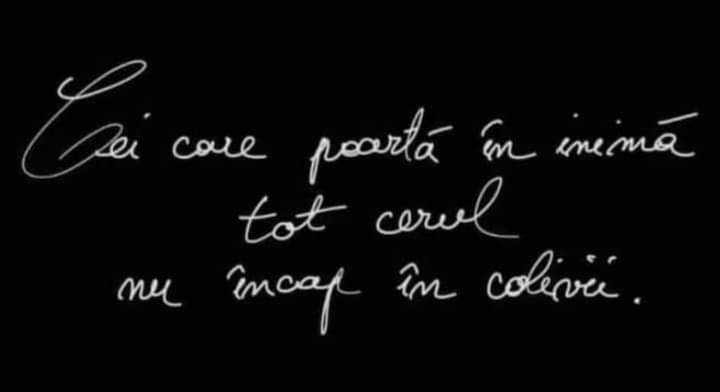 Cei care poartă în inimă
tot cerul
nu încap în colivii.